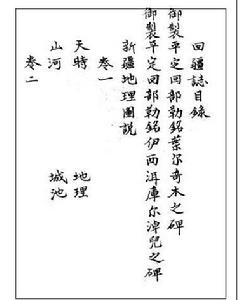 回疆誌目錄
御製平定回部勒銘葉尔奇木之碑
御製平定回部勒銘伊西洱庫尔淖兒之碑
新疆地理圖説
卷一
天時 地理
山河 城池
卷二